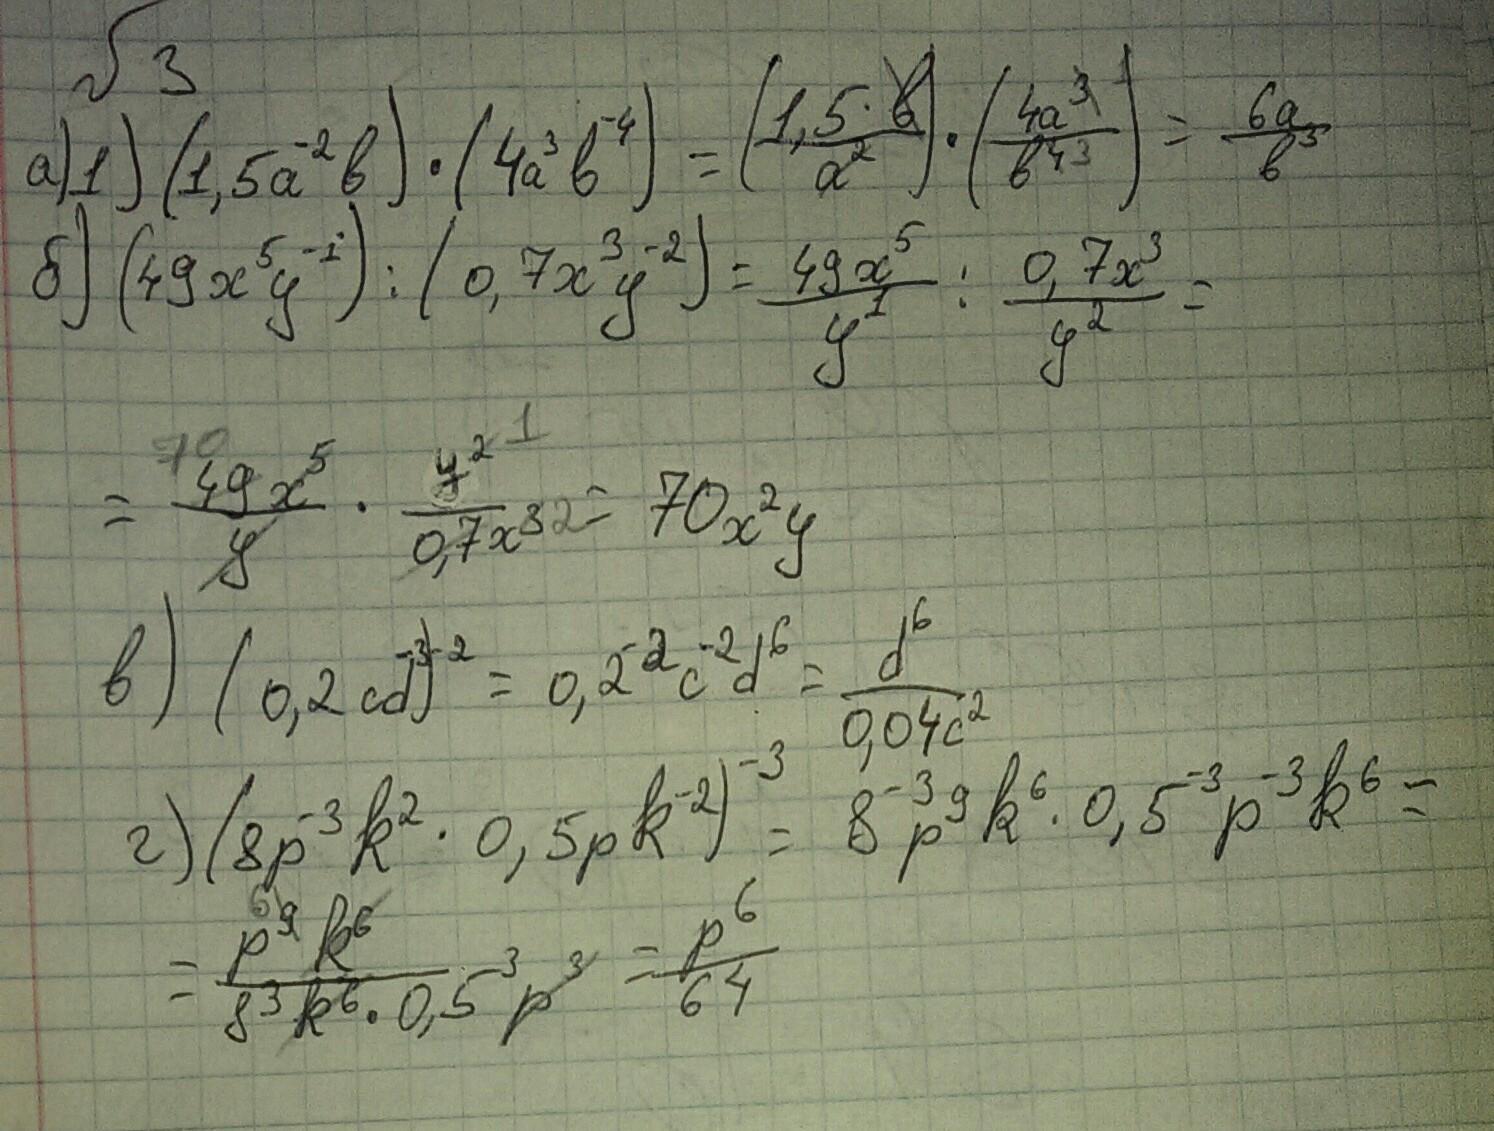 √ 3
а)1) (1,5a⁻²b)·(4a³b⁻⁴) = (1,5·b/a²)·(4a³ ¹/b⁴ ³) = 6a/b³
б) (49x⁵y⁻¹):(0,7x³y⁻²) = 49x⁵/y¹ : 0,7x³/y² =
= 70 49x⁵/y · y² ¹/0,7x³ ² = 70x²y
в) (0,2cd⁻³)⁻² = 0,2⁻²c⁻²d⁶ = d⁶/0,04c²
г) (8p⁻³k²·0,5pk⁻²)⁻³ = 8⁻³p⁹k⁶·0,5⁻³p⁻³k⁶ =
= p⁶ ⁹k⁶/8³k⁶·0,5³p³ = p⁶/64